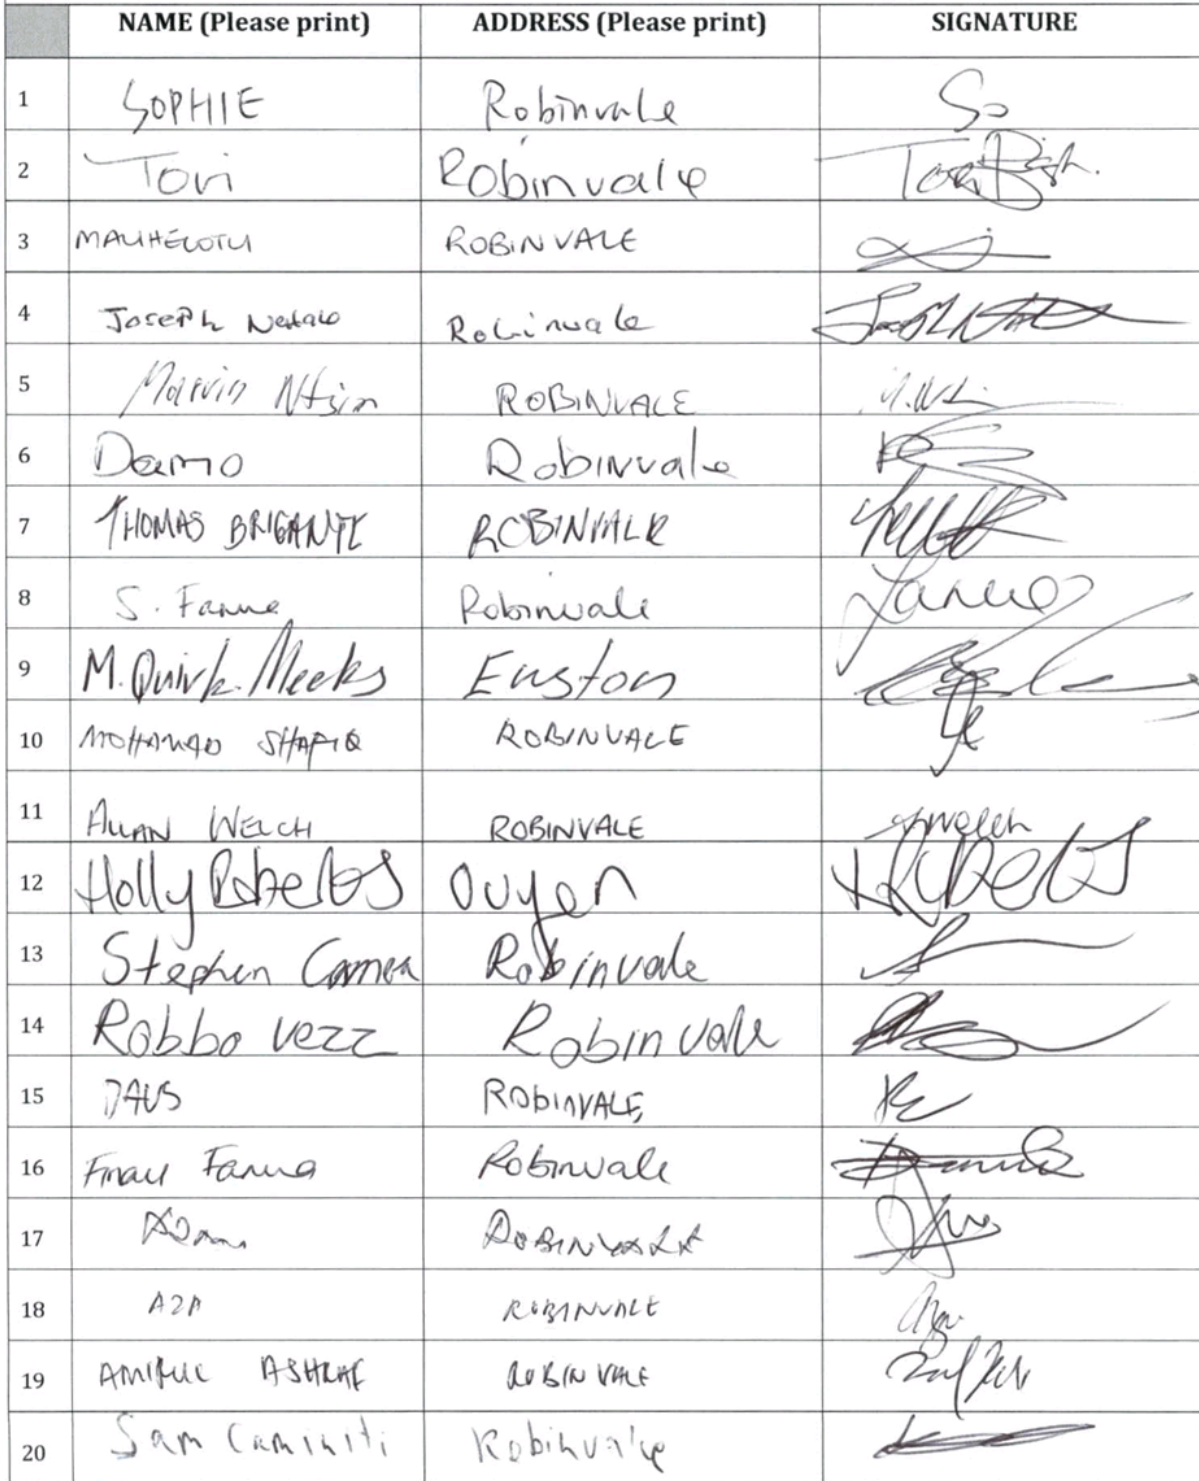 NAME (Please print) ADDRESS (Please print) SIGNATURE
1 SOPHIE Robinvale So
2 Tori Robinvale
3 ROBINVALE
4 Joseph Natale Robinvale
5 Marvin Ntsin ROBINVALE
6 Damo Robinvale
7 THOMAS BRIGANTE ROBINVALE
8 S. Fanua Robinvale Fanua
9 M. Quirk-Meeks Euston
10 MOHAMAD SHAFIQ ROBINVALE
11 ALLAN WELCH ROBINVALE Awelch
12 Holly Roberts Ouyen HRoberts
13 Stephen Robinvale
14 Robbo Vezz Robinvale
15 ROBINVALE
16 Fanua Robinvale
17 Adam ROBINVALE
18 AZA ROBINVALE
19 AMIRUL ASHRAF ROBINVALE
20 Sam Caminiti Robinvale